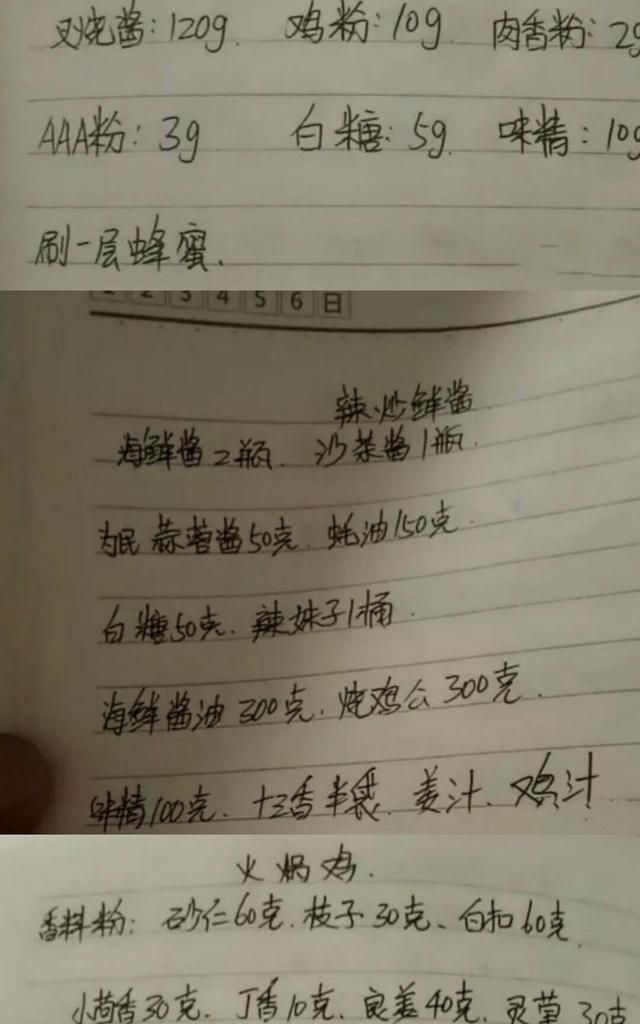 叉烧酱：120g. 鸡粉：10g. 肉香粉：2g
AAA粉：3g 白糖：5g. 味精：10g
刷一层蜂蜜.
1 2 3 4 5 6 日
辣炒鲜酱
海鲜酱2瓶. 沙茶酱1瓶.
为民蒜蓉酱50克. 蚝油150克
白糖50克. 辣妹子1桶.
海鲜酱油300克. 炖鸡公300克.
味精100克. 十三香半袋. 姜汁. 鸡汁
火焗鸡.
香料粉：砂仁60克. 枝子30克、白扣60克
小茴香30克. 丁香10克. 良姜40克. 灵草30克